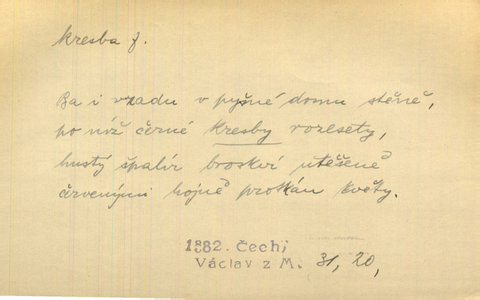 kresba f.
Ba i vzadu v pyšné domu stěně,
po níž černé kresby rozesety,
hustý špalír broskví utěšeně
červenými hojně protkán květy.
1882. Čech,
Václav z M. 31, 20,